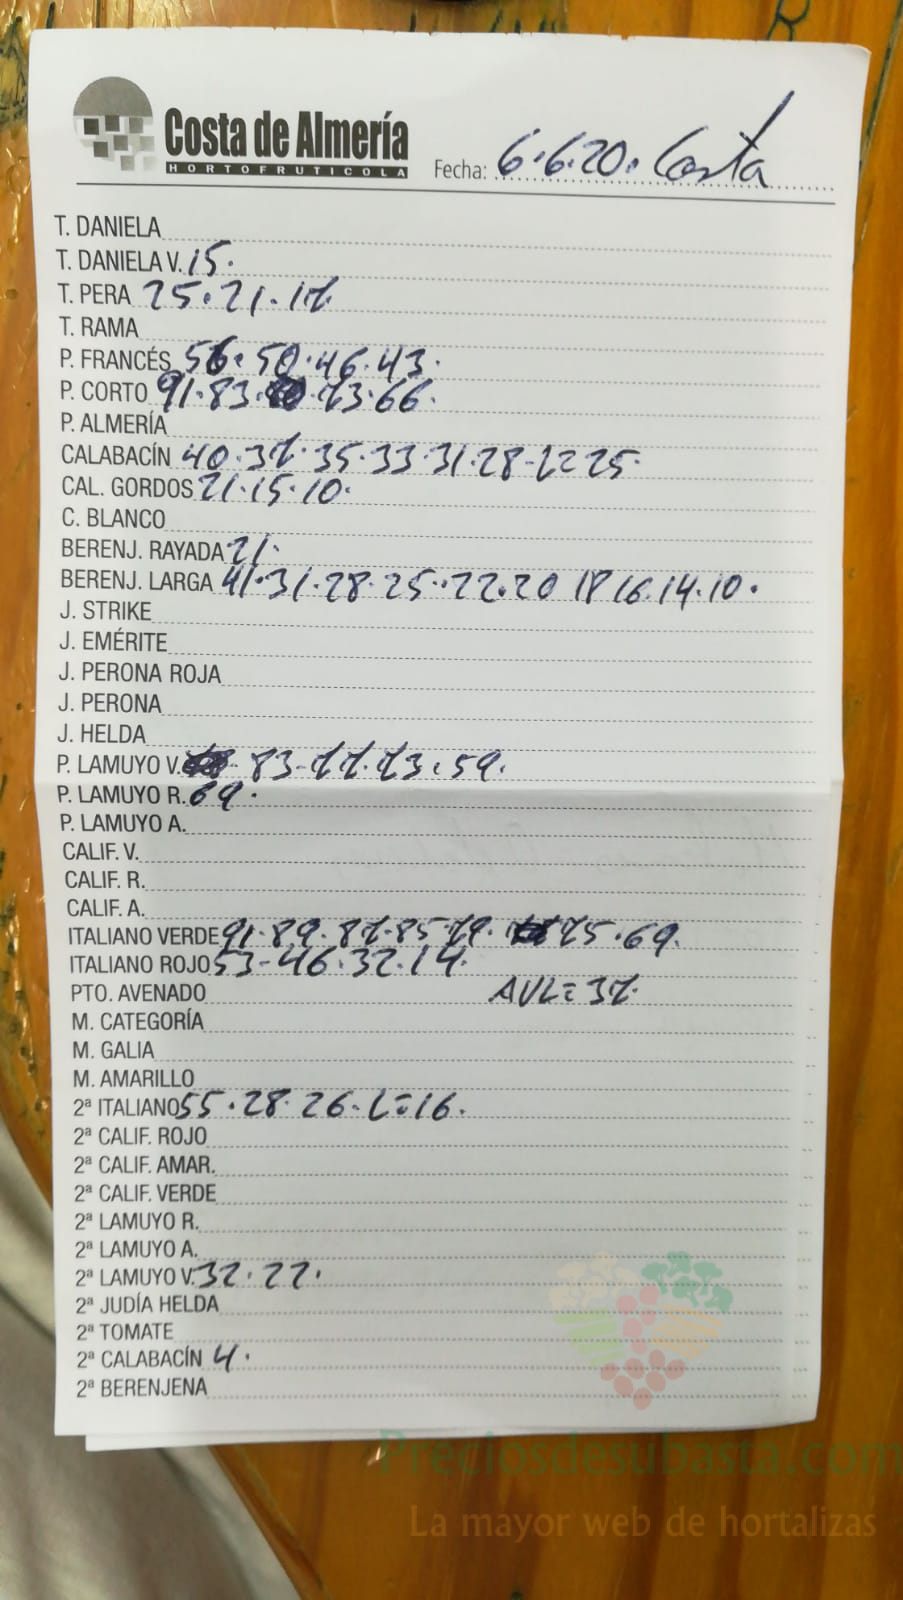 Costa de Almería
HORTOFRUTICOLA
Fecha: 6.6.20. Costa
T. DANIELA
T. DANIELA V. 15.
T. PERA 25.21.17.
T. RAMA
P. FRANCÉS 56.50.46.43.
P. CORTO 91.83. 73.66.
P. ALMERÍA
CALABACÍN 40.37.35.33.31.28-L=25.
CAL. GORDOS 21.15.10.
C. BLANCO
BERENJ. RAYADA 21.
BERENJ. LARGA 41.31.28.25.22.20 18 16.14.10.
J. STRIKE
J. EMÉRITE
J. PERONA ROJA
J. PERONA
J. HELDA
P. LAMUYO V. 83-77.73.59.
P. LAMUYO R. 69.
P. LAMUYO A.
CALIF. V.
CALIF. R.
CALIF. A.
ITALIANO VERDE 91.89.87.85.79. 75.69.
ITALIANO ROJO 53-46.32.14.
PTO. AVENADO AVL=37.
M. CATEGORÍA
M. GALIA
M. AMARILLO
2ª ITALIANO 55.28.26.L=16.
2ª CALIF. ROJO
2ª CALIF. AMAR.
2ª CALIF. VERDE
2ª LAMUYO R.
2ª LAMUYO A.
2ª LAMUYO V. 32.22.
2ª JUDÍA HELDA
2ª TOMATE
2ª CALABACÍN 4.
2ª BERENJENA
Preciosdesubasta.com
La mayor web de hortalizas